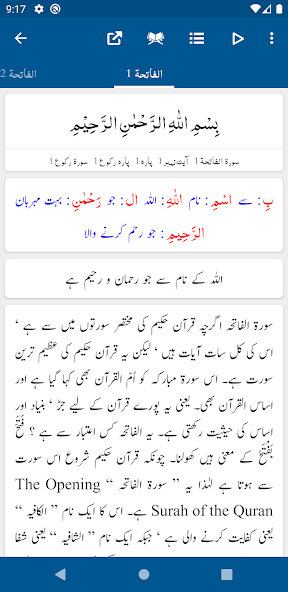 9:17
الفاتحة 1
الفاتحة 2
بِسْمِ اللّٰهِ الرَّحْمٰنِ الرَّحِيْمِ
سورۃ الفاتحة 1 آیت نمبر 1 پارہ 1 پارہ رکوع 1 سورۃ رکوع 1
بِ: سے اسْمِ: نام اللّٰهِ: اللہ ال: جو رَحْمٰنِ: بہت مہربان
الرَّحِيْمِ: جو رحم کرنے والا
اللہ کے نام سے جو رحمان و رحیم ہے
سورۃ الفاتحہ اگرچہ قرآن حکیم کی مختصر سورتوں میں سے ہے ‘
اس کی کل سات آیات ہیں ‘ لیکن یہ قرآن حکیم کی عظیم ترین
سورت ہے۔ اس سورۃ مبارکہ کو اُمّ القرآن بھی کہا گیا ہے اور
اساس القرآن بھی۔ یعنی یہ پورے قرآن کے لیے جڑ ‘ بنیاد اور
اساس کی حیثیت رکھتی ہے۔ یہ الفاتحہ کس اعتبار سے ہے ؟ فَتَحَ
یَفْتَحُ کے معنی ہیں کھولنا۔ چونکہ قرآن حکیم شروع اس سورت
سے ہوتا ہے لہٰذا یہ ” سورۃ الفاتحہ “ The Opening
Surah of the Quran ہے۔ اس کا ایک نام ” الکافیہ “
یعنی کفایت کرنے والی ہے ‘ جبکہ ایک نام ” الشافیہ “ یعنی شفا